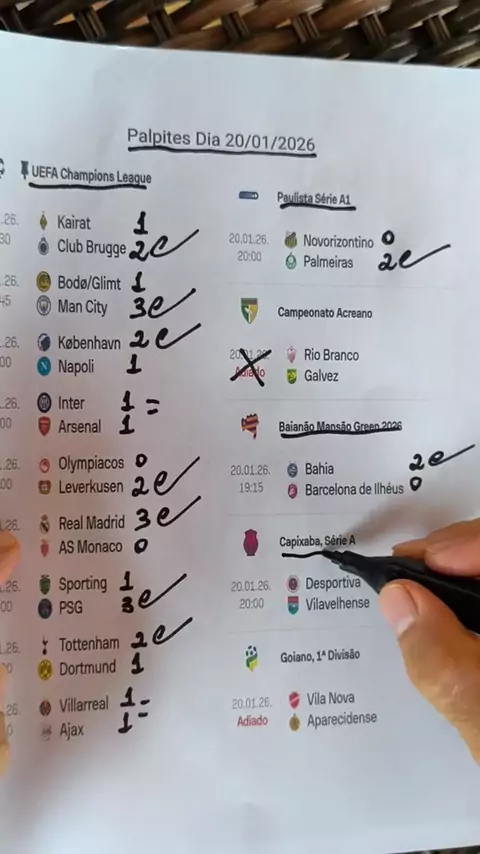 Palpites Dia 20/01/2026
UEFA Champions League
.26. Kairat 1
30 Club Brugge 2
.26. Bodø/Glimt 1
45 Man City 3
.26. København 2
00 Napoli 1
.26. Inter 1 =
00 Arsenal 1
.26. Olympiacos 0
00 Leverkusen 2
.26. Real Madrid 3
AS Monaco 0
.26. Sporting 1
00 PSG 3
.26. Tottenham 2
Dortmund 1
.26. Villarreal 1 =
Ajax 1
Paulista Série A1
20.01.26. Novorizontino 0
20:00 Palmeiras 2
Campeonato Acreano
20.01.26. Rio Branco
Adiado Galvez
Baianão Mansão Green 2026
20.01.26. Bahia 2
19:15 Barcelona de Ilhéus 0
Capixaba, Série A
20.01.26. Desportiva
20:00 Vilavelhense
Goiano, 1ª Divisão
20.01.26. Vila Nova
Adiado Aparecidense